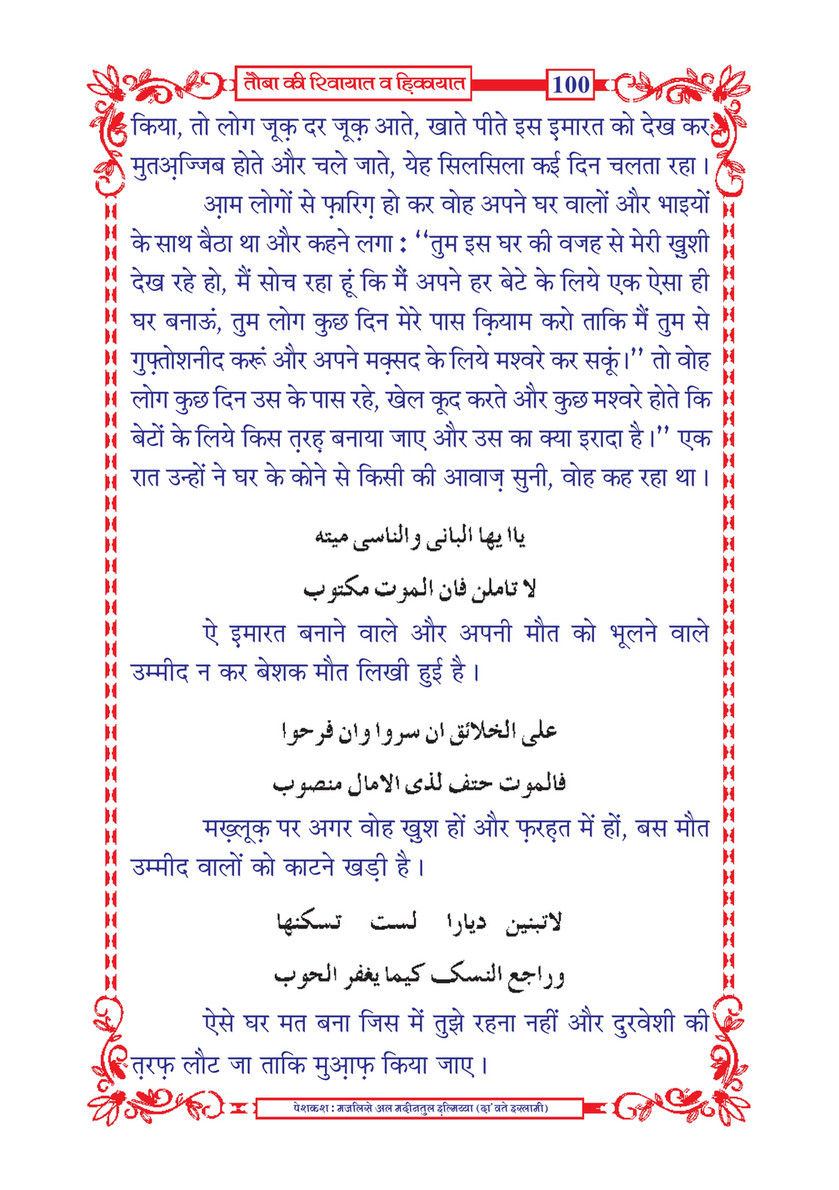 तौबा की रिवायात व हिकायात
100
किया, तो लोग जूक़ दर जूक़ आते, खाते पीते इस इमारत को देख कर
मुतअ़ज्जिब होते और चले जाते, येह सिलसिला कई दिन चलता रहा।
आ़म लोगों से फ़ारिग़ हो कर वोह अपने घर वालों और भाइयों
के साथ बैठा था और कहने लगा : ‘‘तुम इस घर की वजह से मेरी ख़ुशी
देख रहे हो, मैं सोच रहा हूं कि मैं अपने हर बेटे के लिये एक ऐसा ही
घर बनाऊं, तुम लोग कुछ दिन मेरे पास क़ियाम करो ताकि मैं तुम से
गुफ़्तोशनीद करूं और अपने मक़्सद के लिये मश्वरे कर सकूं।’’ तो वोह
लोग कुछ दिन उस के पास रहे, खेल कूद करते और कुछ मश्वरे होते कि
बेटों के लिये किस त़रह़ बनाया जाए और उस का क्या इरादा है।’’ एक
रात उन्हों ने घर के कोने से किसी की आवाज़ सुनी, वोह कह रहा था।
ياايها البانى والناسى ميته
لا تاملن فان الموت مكتوب
ऐ इमारत बनाने वाले और अपनी मौत को भूलने वाले
उम्मीद न कर बेशक मौत लिखी हुई है।
على الخلائق ان سروا وان فرحوا
فالموت حتف لذى الامال منصوب
मख़्लूक़ पर अगर वोह ख़ुश हों और फ़रह़त में हों, बस मौत
उम्मीद वालों को काटने खड़ी है।
لاتبنين ديارا لست تسكنها
وراجع النسك كيما يغفر الحوب
ऐसे घर मत बना जिस में तुझे रहना नहीं और दुरवेशी की
त़रफ़ लौट जा ताकि मुआ़फ़ किया जाए।
पेशकश : मजलिसे अल मदीनतुल इल्मिय्या (दा'वते इस्लामी)